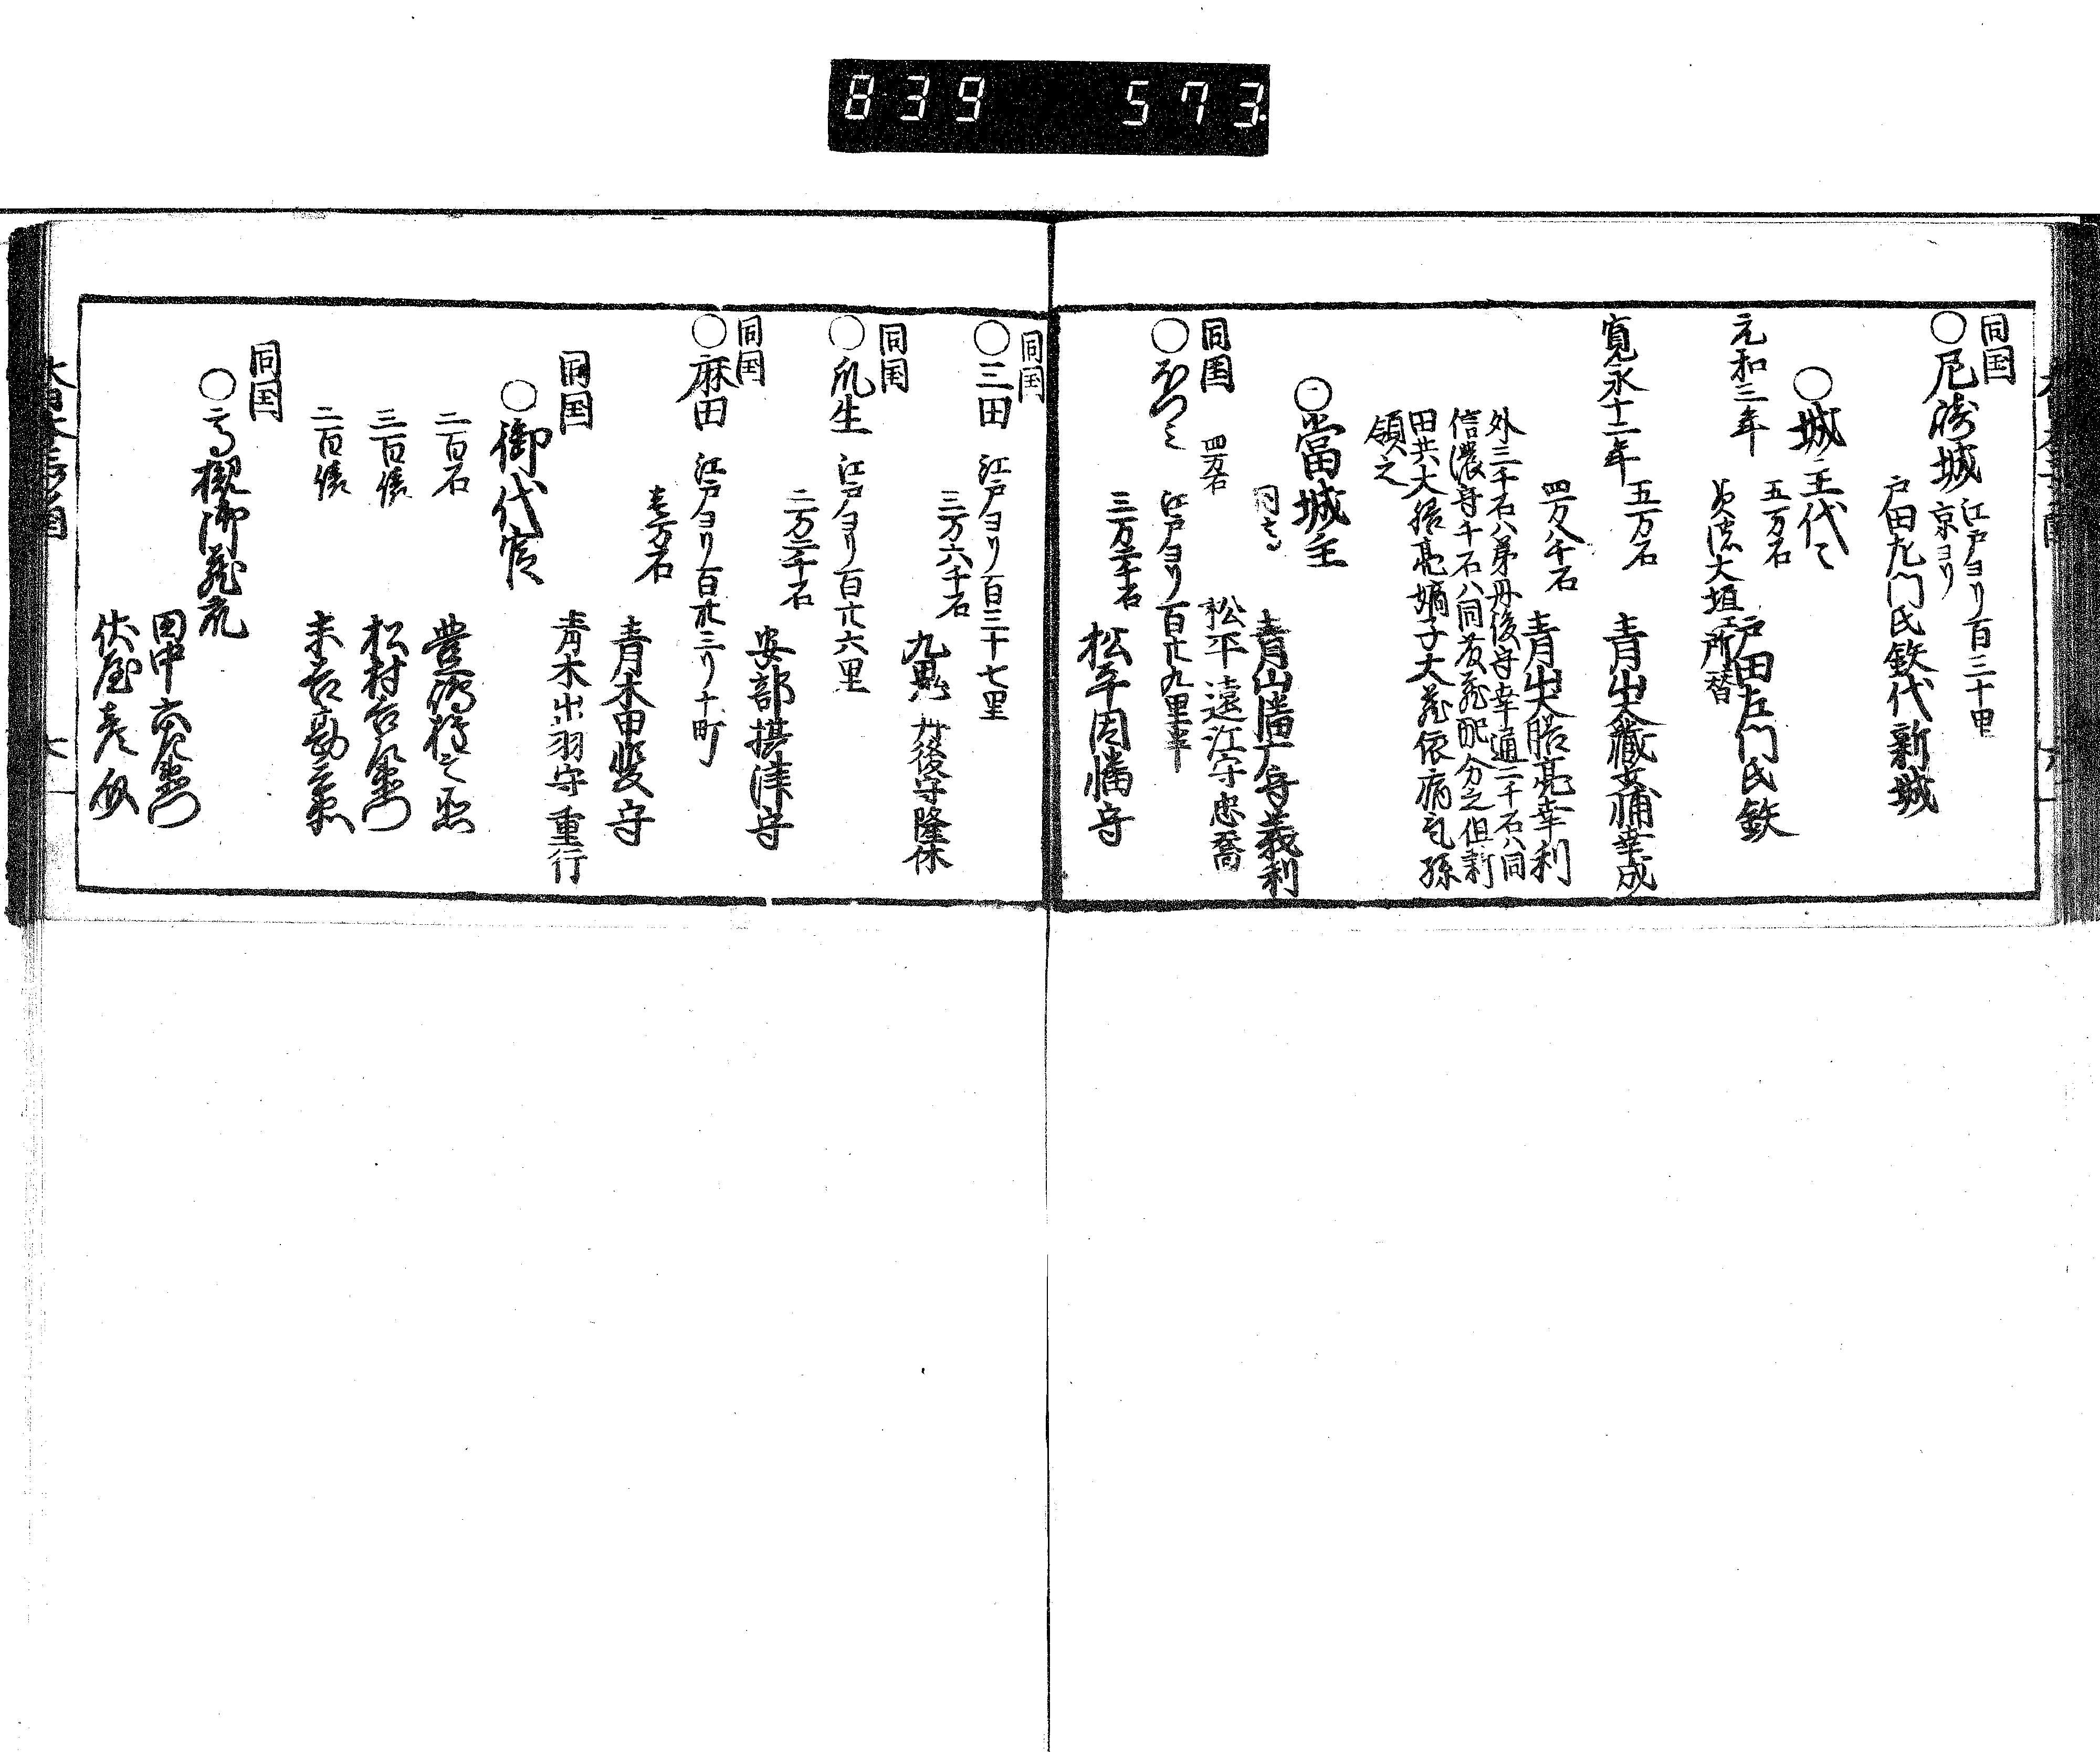 839 573
同国
○尼崎城
江戸ヨリ百三十里
京ヨリ
戸田左門氏鉄代新城
○城主代々
元和三年
五万石
戸田左門氏鉄
大垣エ所替
寛永十二年
五万石
青山大蔵少輔幸成
四万八千石
青山大膳亮幸利
外三千石ハ弟丹後守幸通二千石ハ同
信濃守千石ハ同
配分之但新
田共大膳亮嫡子大蔵依病気孫
領之
○當城主
同高
青山播广守義利
同国
四万石
松平遠江守忠喬
○
江戸ヨリ百廿九里半
三万二千石
松平因幡守
同国
○三田
江戸ヨリ百三十七里
三万六千石
九鬼丹後守隆休
同国
○瓜生
江戸ヨリ百廿六里
二万二千石
安部摂津守
同国
○麻田
江戸ヨリ百卅三リ十町
壱万石
青木甲斐守
青木出羽守重行
同国
○御代官
二百石
三百俵
松村吉左衛門
二百俵
末吉勘兵衛
同国
○高槻御蔵元
田中六左衛門
伏屋